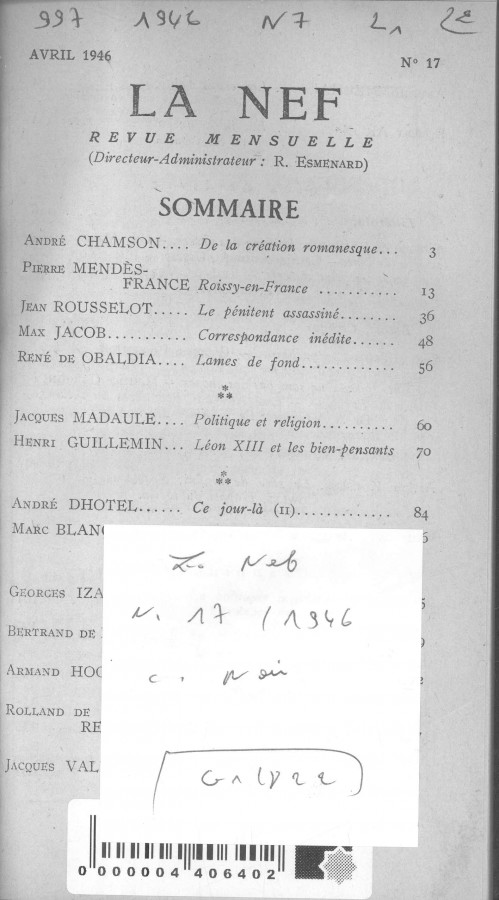 997 1946 N7
AVRIL 1946
N° 17
LA NEF
REVUE MENSUELLE
(Directeur-Administrateur : R. ESMENARD)
SOMMAIRE
ANDRÉ CHAMSON.... De la création romanesque... 3
PIERRE MENDÈS-
FRANCE Roissy-en-France ........... 13
JEAN ROUSSELOT..... Le pénitent assassiné........ 36
MAX JACOB........... Correspondance inédite...... 48
RENÉ DE OBALDIA.... Lames de fond............. 56
JACQUES MADAULE.... Politique et religion.......... 60
HENRI GUILLEMIN... Léon XIII et les bien-pensants 70
ANDRÉ DHOTEL...... Ce jour-là (II)............. 84
MARC BLANC
GEORGES IZA
BERTRAND DE
ARMAND HOG
ROLLAND DE
RE
JACQUES VAL
N. 17 / 1946
0 000004 406402